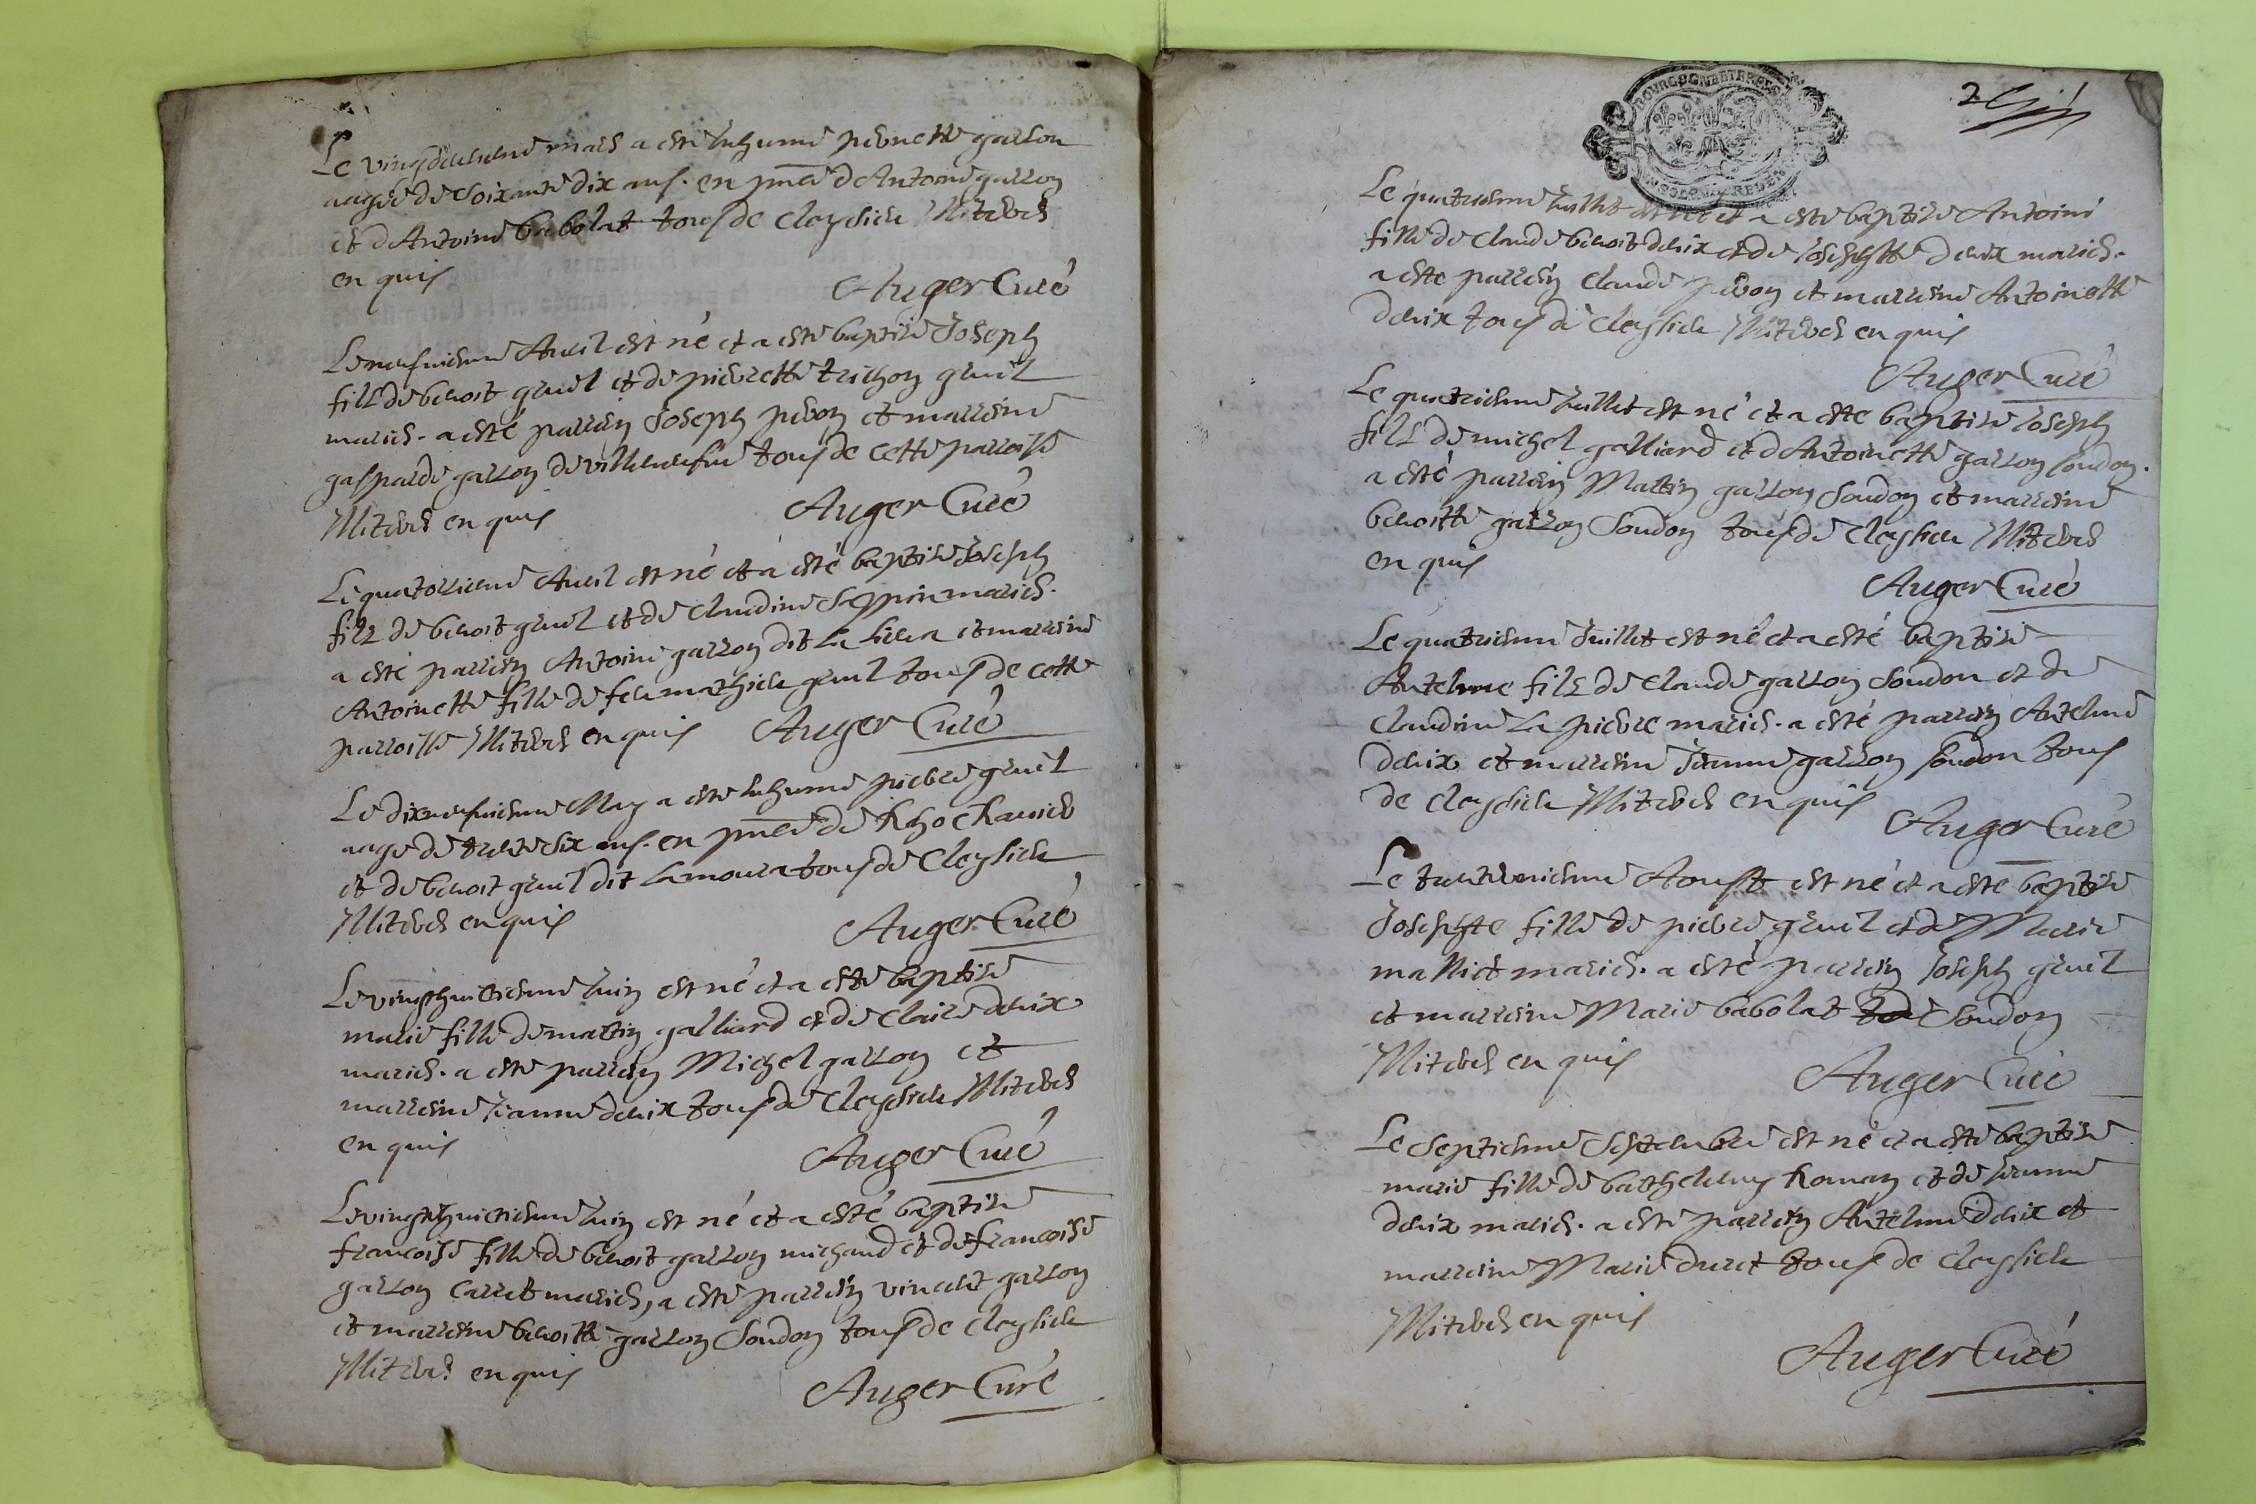 Le vingdeuxieme mars a esté inhumé pernette garron
aagée de soixante dix ans. en pnce d'Antoine garron
et d'Antoine babolat tous de Cleysieu Illiterés
en quis
Auger Curé
Le neufvieme Avril est né et a esté baptisé Joseph
fils de benoit gruel et de pierrette trichon gruel
mariés. a esté parrein Joseph pebon et marreine
gasparde garron de villeneufve tous de cette parroisse
Illiterés en quis
Auger Curé
Le quatorzieme Avril est né et a esté baptisé Joseph
fils de benoit gruel et de Claudine Seppin mariés.
a esté parrein Antoine garron dit et marreine
Antoinette fille de feu mathieu gruel tous de cette
parroisse Illiterés en quis
Auger Curé
Le dixneufvieme May a esté inhumé pierre gruel
aagé de trente six ans. en pnce de
et de benoit gruel dit Lamoura tous de Cleysieu
Illiterés en quis
Auger Curé
Le vingthuictieme Juin est né et a esté baptisé
marie fille de martin galliard et de Claire deuix
mariés. a esté parrein Michel garron et
marreine Jeanne deuix tous de Cleysieu Illiterés
en quis
Auger Curé
Le vingthuictieme Juin est né et a esté baptisé
francoise fille de benoit garron michaud et de francoise
garron Carret mariés, a esté parrein vincent garron
et marreine benoitte garron Soudon tous de Cleysieu
Illiterés en quis
Auger Curé
2
Le quatrieme Juillet est né et a esté baptisé Antoine
fille de Claude benoit deuix et de Josephte deuix mariés.
a esté parrein Claude pebon et marreine Antoinette
deuix tous de Cleysieu Illiterés en quis
Auger Curé
Le quatrieme Juillet est né et a esté baptisé Joseph
fils de michel galliard et d'Antoinette garron soudon.
a esté parrein Martin garron Soudon et marreine
benoitte garron Soudon tous de Cleysieu Illiterés
en quis
Auger Curé
Le quatrieme Juillet est né et a esté baptisé
Antelme fils de Claude garron Soudon et de
Claudine La pierre mariés. a esté parrein Antelme
deuix et marreine Jeanne garron soudon tous
de Cleysieu Illiterés en quis
Auger Curé
Le trentunieme Aoust est né et a esté baptisé
Josephte fille de pierre gruel et de Marie
mallict mariés. a esté parrein Joseph gruel
et marreine Marie babolat Soudon
Illiterés en quis
Auger Curé
Le septieme Septembre est né et a esté baptisé
marie fille de barthelemy Roman et de Jeanne
deuix mariés. a esté parrein Antelme deuix et
marreine Marie duret tous de Cleysieu
Illiterés en quis
Auger Curé